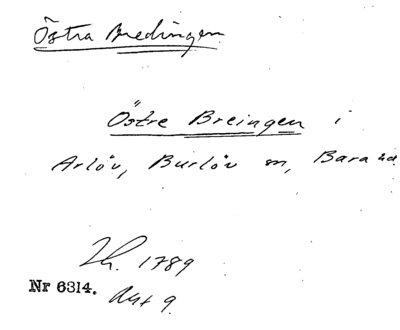 Östra Bredingen
Östre Breingen i
Arlöv, Burlöv sn, Bara hd
Lh. 1789
Nr 6314. Akt 9.